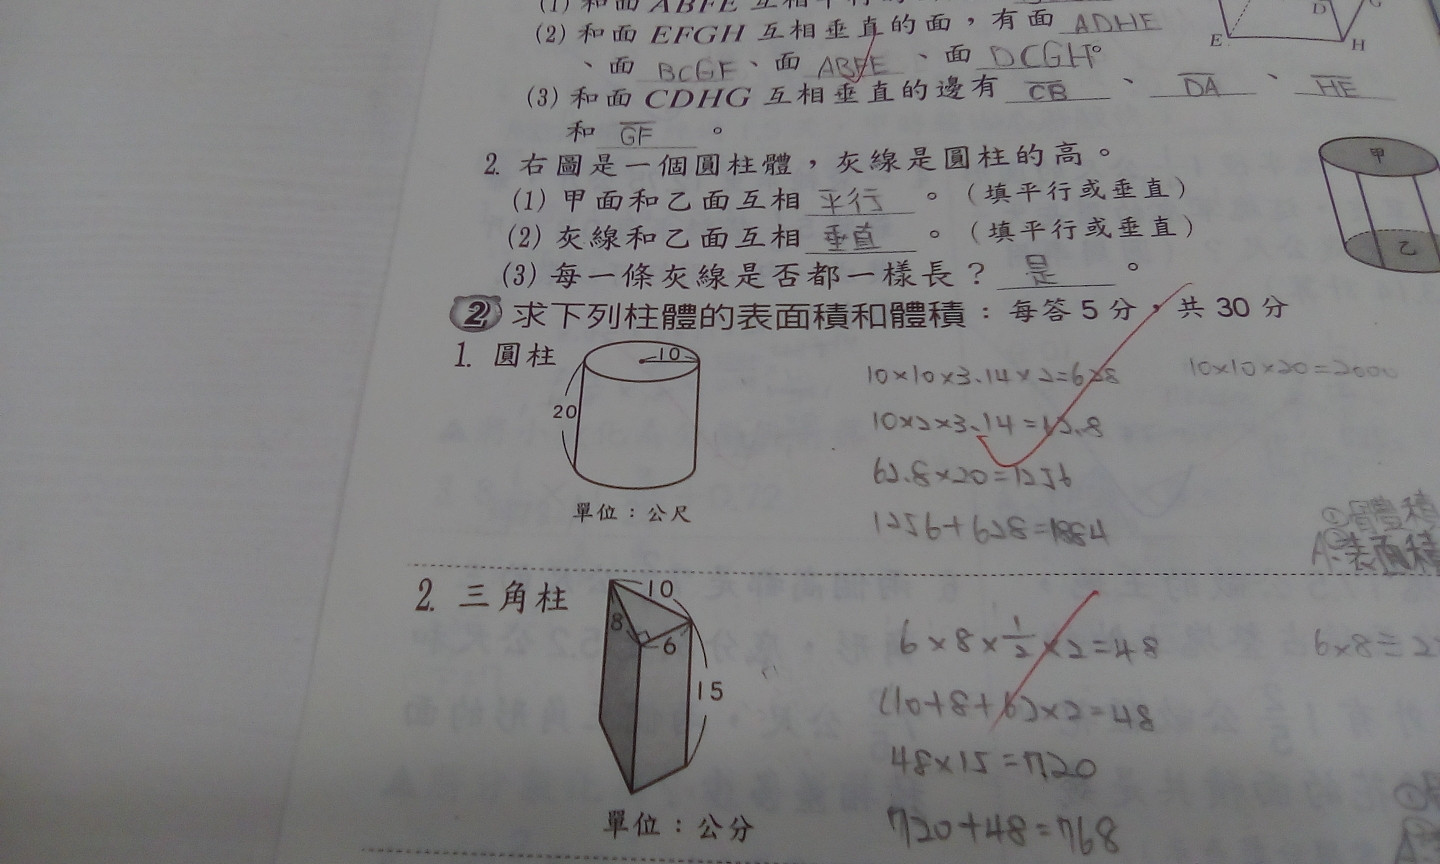 (1) 和面 ABFE 互相平行的
(2) 和面 EFGH 互相垂直的面，有面 ADHE
、面 BCGF、面 ABFE、面 DCGH。
(3) 和面 CDHG 互相垂直的邊有 CB、DA、HE
和 GF。
E
D
G
H
2. 右圖是一個圓柱體，灰線是圓柱的高。
(1) 甲面和乙面互相 平行。（填平行或垂直）
(2) 灰線和乙面互相 垂直。（填平行或垂直）
(3) 每一條灰線是否都一樣長？ 是。
甲
乙
2 求下列柱體的表面積和體積：每答 5 分，共 30 分
1. 圓柱
10
20
單位：公尺
10×10×3.14×2=628
10×10×20=2000
10×2×3.14=62.8
62.8×20=1256
1256+628=1884
①體積
A:②表面積
2. 三角柱
10
8
6
15
單位：公分
6×8×1/2×2=48
6×8÷2
(10+8+6)×2=48
48×15=720
720+48=768